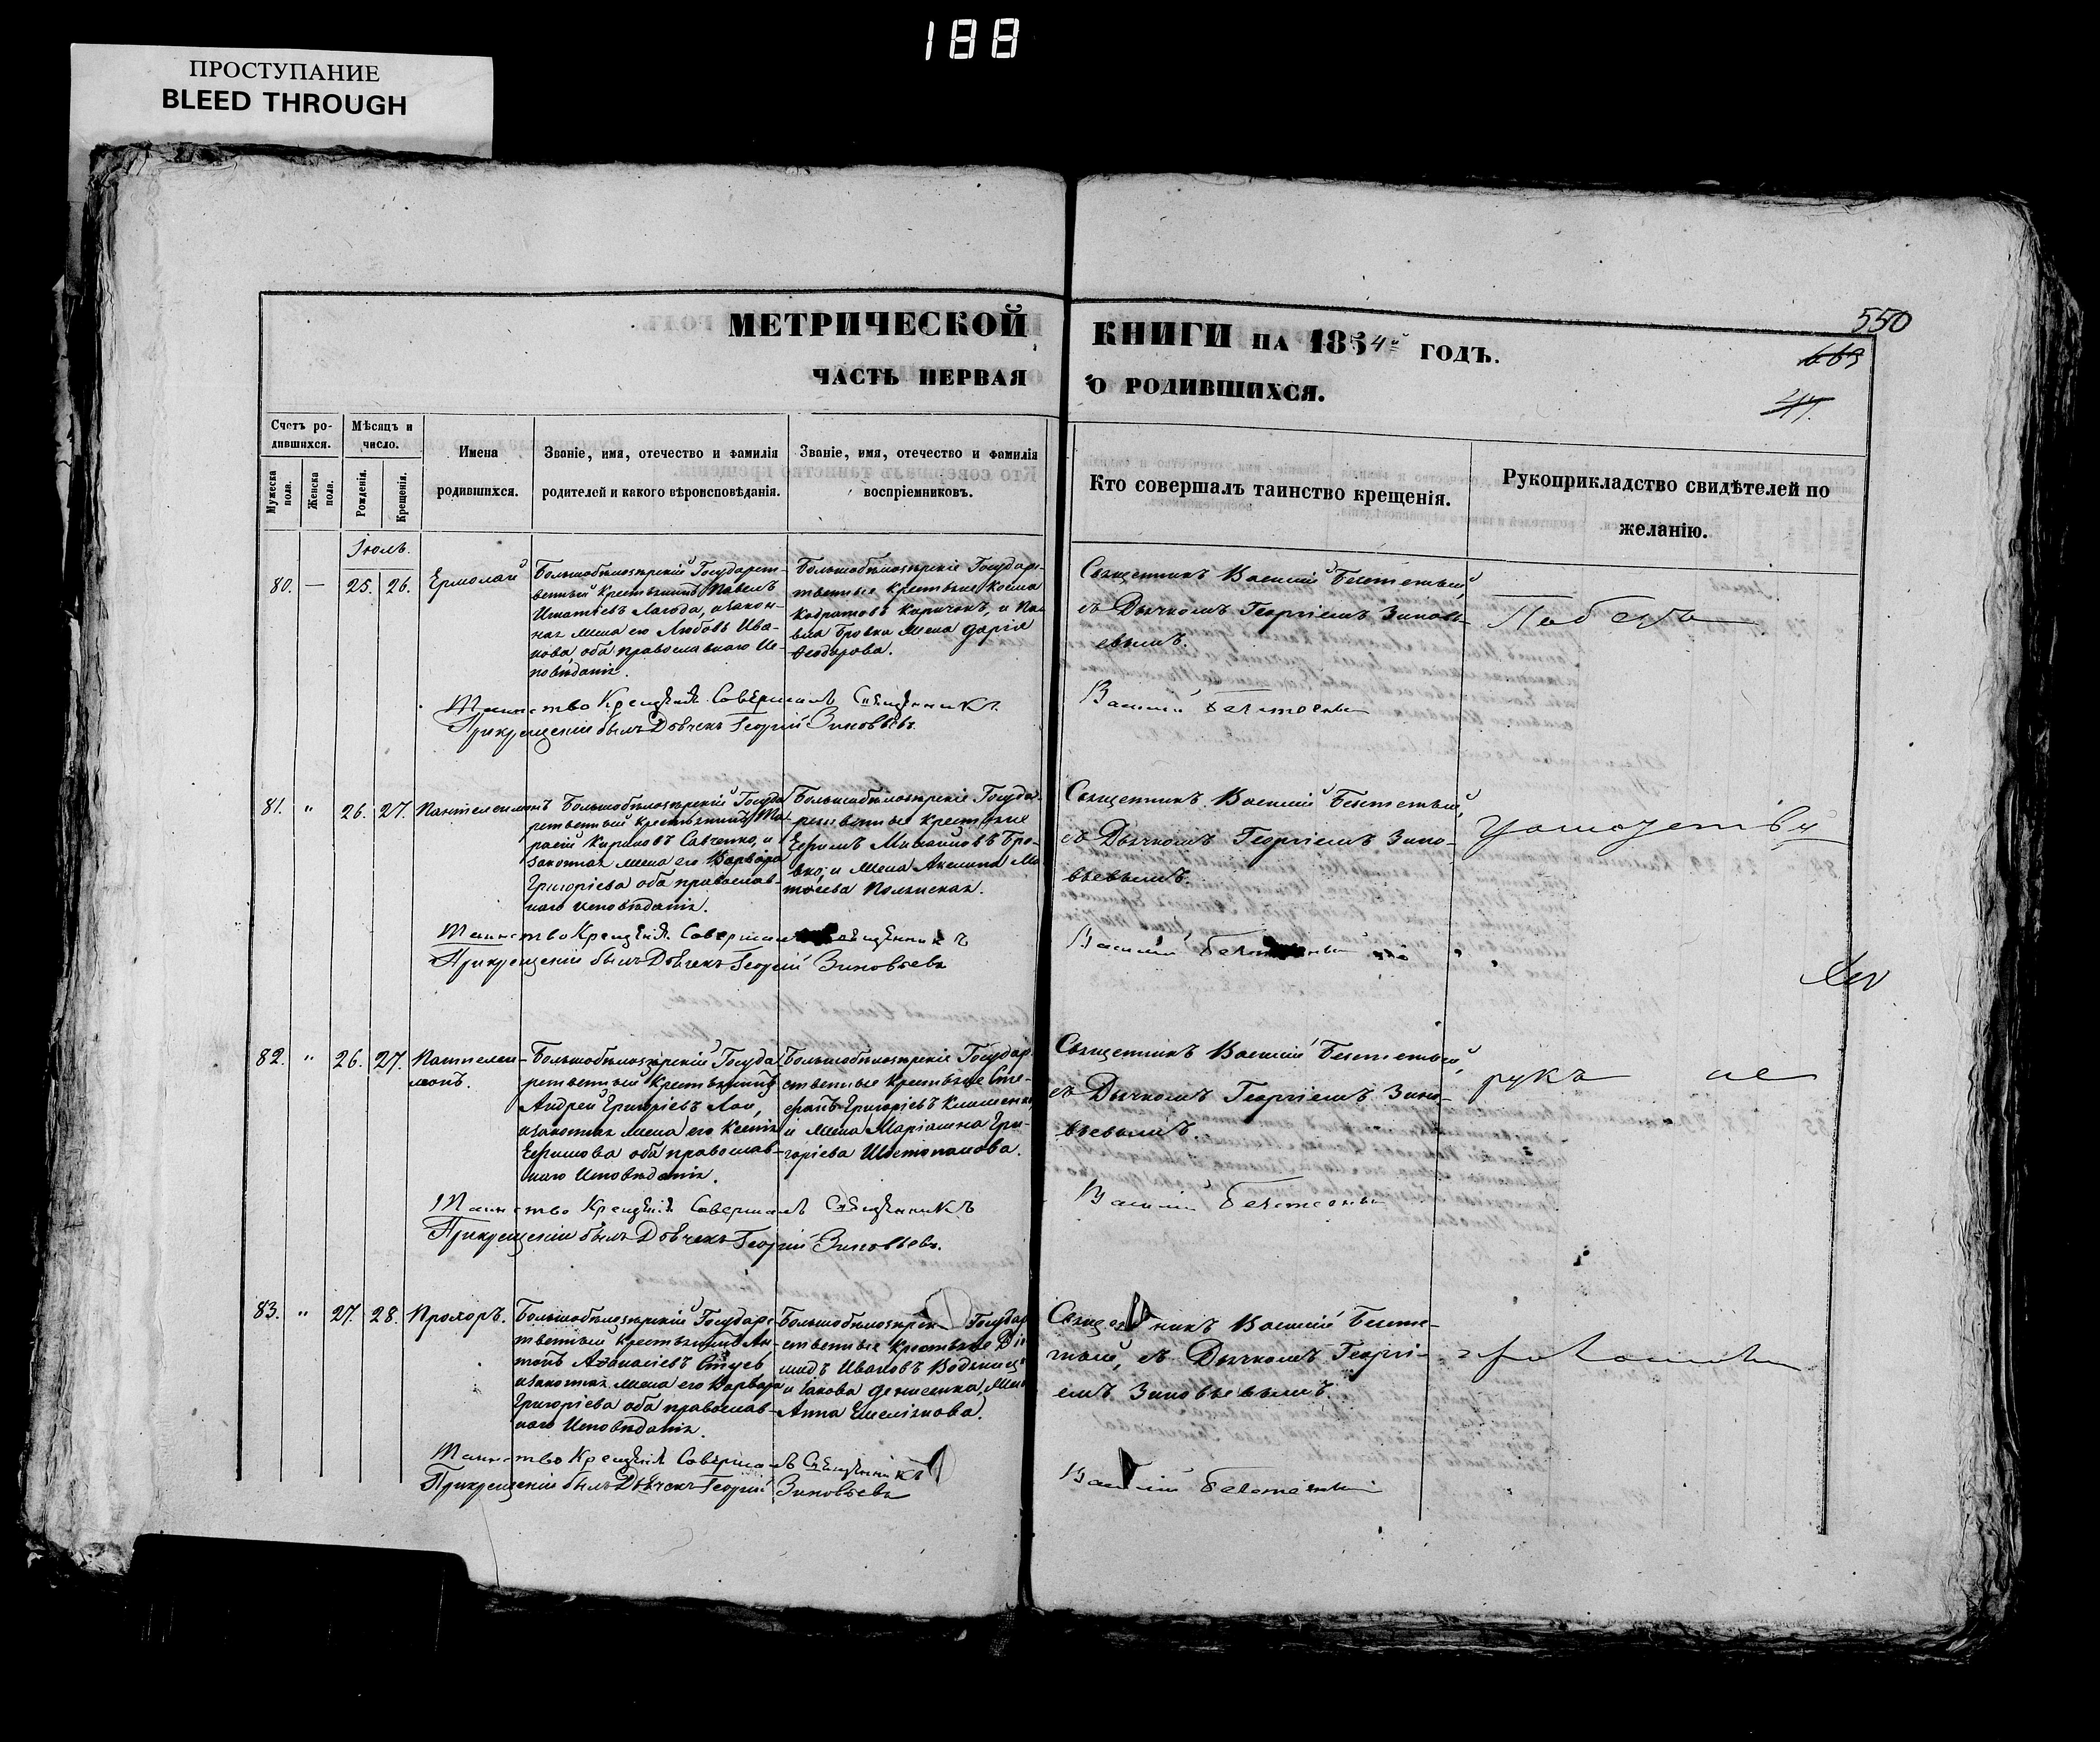 188
ПРОСТУПАНИЕ
BLEED THROUGH
МЕТРИЧЕСКОЙ КНИГИ НА 1854й ГОДЪ.
ЧАСТЬ ПЕРВАЯ О РОДИВШИХСЯ.
550
669
Счетъ родившихся.
Мужеска пола.
Женска пола.
Мѣсяцъ и число.
Рожденія.
Крещенія.
Имена родившихся.
Званіе, имя, отечество и фамилія родителей и какого вѣроисповѣданія.
Званіе, имя, отечество и фамилія воспріемниковъ.
Кто совершалъ таинство крещенія.
Рукоприкладство свидѣтелей по желанію.
Іюль.
80. — 25. 26. Ермолай
Большобѣлозѣрскій Государст-
венный крестьянинъ Павелъ
Игнатьевъ Лагода, и закон-
ная жена его Любовь Ива-
нова, оба православнаго Ис-
повѣданія.
Большобѣлозѣрскіе Государ-
ственные крестьяне Косма
Кодратовъ Киричокъ, и Па-
вла Бровка жена Дарія
Ѳеодорова.
Священникъ Василій
съ Дьячкомъ Георгіемъ Зиновь-
евымъ.
Таинство Крещенія Совершалъ Священникъ
Василій
При крещеніи былъ Дьячекъ Георгій Зиновьевъ.
81. " 26. 27. Пантелеимонъ
Большобѣлозѣрскій Госуда-
рственный крестьянинъ Та-
расій Кириловъ Савченко, и
законная жена его Варвара
Григоріева оба православ-
наго исповѣданія.
Большобѣлозѣрскіе Государ-
ственные крестьяне
Ефимъ Михайловъ Бро-
вко, и жена Акилина Ма-
тѳеева Полянская.
Священникъ Василій
съ Дьячкомъ Георгіемъ Зино-
вьевымъ.
Таинство Крещенія Совершалъ Священникъ
Василій
При крещеніи былъ Дьячекъ Георгій Зиновьевъ
82. " 26. 27. Пантелеи-
монъ.
Большобѣлозѣрскій Госуда-
рственный крестьянинъ
Андрей Григоріевъ Лой,
и законная жена его Ксенія
Ефимова оба православ-
наго Исповѣданія.
Большобѣлозѣрскіе Государ-
ственные крестьяне Сте-
фанъ Григоріевъ Клименко,
и жена Маріамна Гри-
горіева Шостопалова.
Священникъ Василій
съ Дьячкомъ Георгіемъ Зино-
вьевымъ.
рукъ не
Таинство Крещенія Совершалъ Священникъ
Василій
При крещеніи былъ Дьячекъ Георгій Зиновьевъ.
83. " 27. 28. Прохоръ.
Большобѣлозѣрскій Государс-
твенный крестьянинъ Ан-
тонъ Аѳанасіевъ
и законная жена его Варвара
Григоріева оба православ-
наго Исповѣданія.
Государ-
ственные крестьяне
Ивановъ
и Іакова Денисенка, жена
Анна Емеліянова.
Священникъ Василій
съ Дьячкомъ Георгі-
емъ Зиновьевымъ.
Таинство Крещенія Совершалъ Священникъ
Василій
При крещеніи былъ Дьячекъ Георгій Зиновьевъ